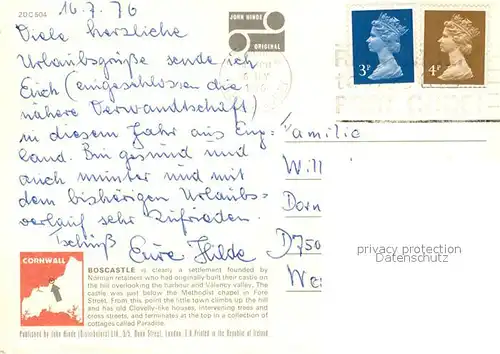 2DC504
16.7.76
JOHN HINDE
ORIGINAL
Viele herzliche
Urlaubsgrüße sende ich
Euch (eingeschlossen die
nähere Verwandtschaft)
in diesem Jahr aus Eng-
land. Bin gesund und
auch munter und mit
dem bisherigen Urlaubs-
verlauf sehr zufrieden.
Tschüß Eure Hilde
3P
4P
Familie
Will
Dorn
D750
We
privacy protection
Datenschutz
CORNWALL
BOSCASTLE is clearly a settlement founded by
Norman retainers who had originally built their castle on
the hill overlooking the harbour and Valency valley. The
castle was just below the Methodist chapel in Fore
Street. From this point the little town climbs up the hill
and has old Clovelly-like houses, intervening trees and
cross streets, and terminates at the top in a collection of
cottages called Paradise.
Published by John Hinde (Distributors) Ltd., London, Printed in the Republic of Ireland